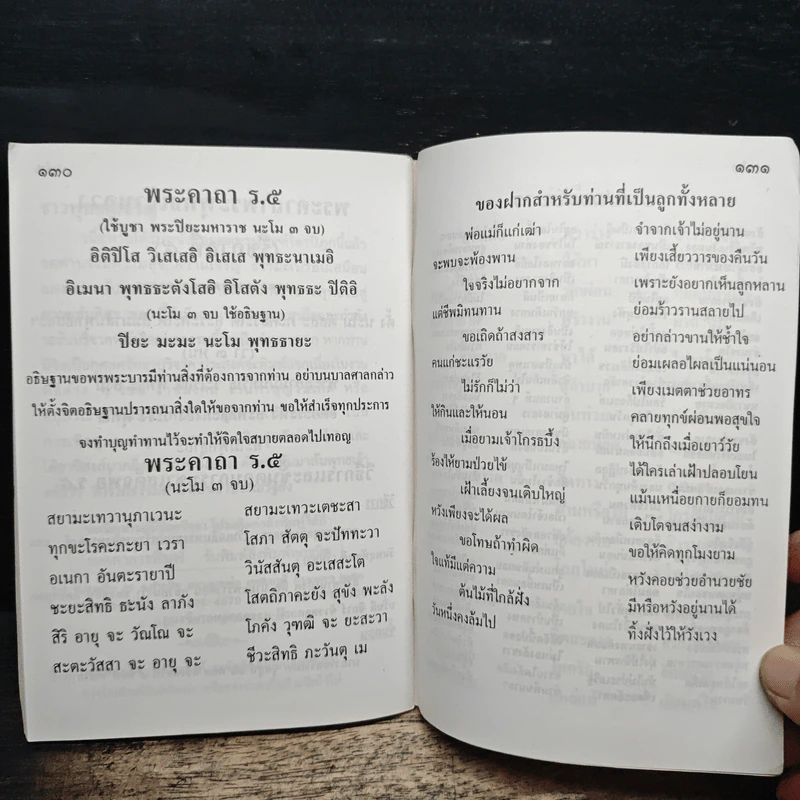 ๑๓๐
พระคาถา ร.๕
(ใช้บูชา พระปิยะมหาราช นะโม ๓ จบ)
อิติปิโส วิเสเสอิ อิเสเส พุทธะนาเมอิ
อิเมนา พุทธธะตังโสอิ อิโสตัง พุทธธะ ปิติอิ
(นะโม ๓ จบ ใช้อธิษฐาน)
ปิยะ มะมะ นะโม พุทธธายะ
อธิษฐานขอพรพระบารมีท่านสิ่งที่ต้องการจากท่าน อย่าบนบาลศาลกล่าว
ให้ตั้งจิตอธิษฐานปรารถนาสิ่งใดให้ขอจากท่าน ขอให้สำเร็จทุกประการ
จงทำบุญทำทานไว้จะทำให้จิตใจสบายตลอดไปเทอญ
พระคาถา ร.๕
(นะโม ๓ จบ)
สยามะเทวานุภาเวนะ สยามะเทวะเตชะสา
ทุกขะโรคะภะยา เวรา โสภา สัตตุ จะปัททะวา
อเนกา อันตะรายาปี วินัสสันตุ อะเสสะโต
ชะยะสิทธิ ธะนัง ลาภัง โสตถิภาคะยัง สุขัง พะลัง
สิริ อายุ จะ วัณโณ จะ โภคัง วุฑฒิ จะ ยะสะวา
สะตะวัสสา จะ อายุ จะ ชีวะสิทธิ ภะวันตุ เม
๑๓๑
ของฝากสำหรับท่านที่เป็นลูกทั้งหลาย
พ่อแม่ก็แก่เฒ่า จำจากเจ้าไม่อยู่นาน
จะพบจะพ้องพาน เพียงเสี้ยววารของคืนวัน
ใจจริงไม่อยากจาก เพราะยังอยากเห็นลูกหลาน
แต่ชีพมิทนทาน ย่อมร้าวรานสลายไป
ขอเถิดถ้าสงสาร อย่ากล่าวขานให้ช้ำใจ
คนแก่ชะแรวัย ย่อมเผลอไผลเป็นแน่นอน
ไม่รักก็ไม่ว่า เพียงเมตตาช่วยอาทร
ให้กินและให้นอน คลายทุกข์ผ่อนพอสุขใจ
เมื่อยามเจ้าโกรธบึ้ง ให้นึกถึงเมื่อเยาว์วัย
ร้องไห้ยามป่วยไข้ ได้ใครเล่าเฝ้าปลอบโยน
เฝ้าเลี้ยงจนเติบใหญ่ แม้นเหนื่อยกายก็ยอมทน
หวังเพียงจะได้ผล เติบโตจนสง่างาม
ขอโทษถ้าทำผิด ขอให้คิดทุกโมงยาม
ใจแท้มีแต่ความ หวังคอยช่วยอำนวยชัย
ต้นไม้ที่ใกล้ฝั่ง มีหรือหวังอยู่นานได้
วันหนึ่งคงล้มไป ทิ้งฝั่งไว้ให้วังเวง